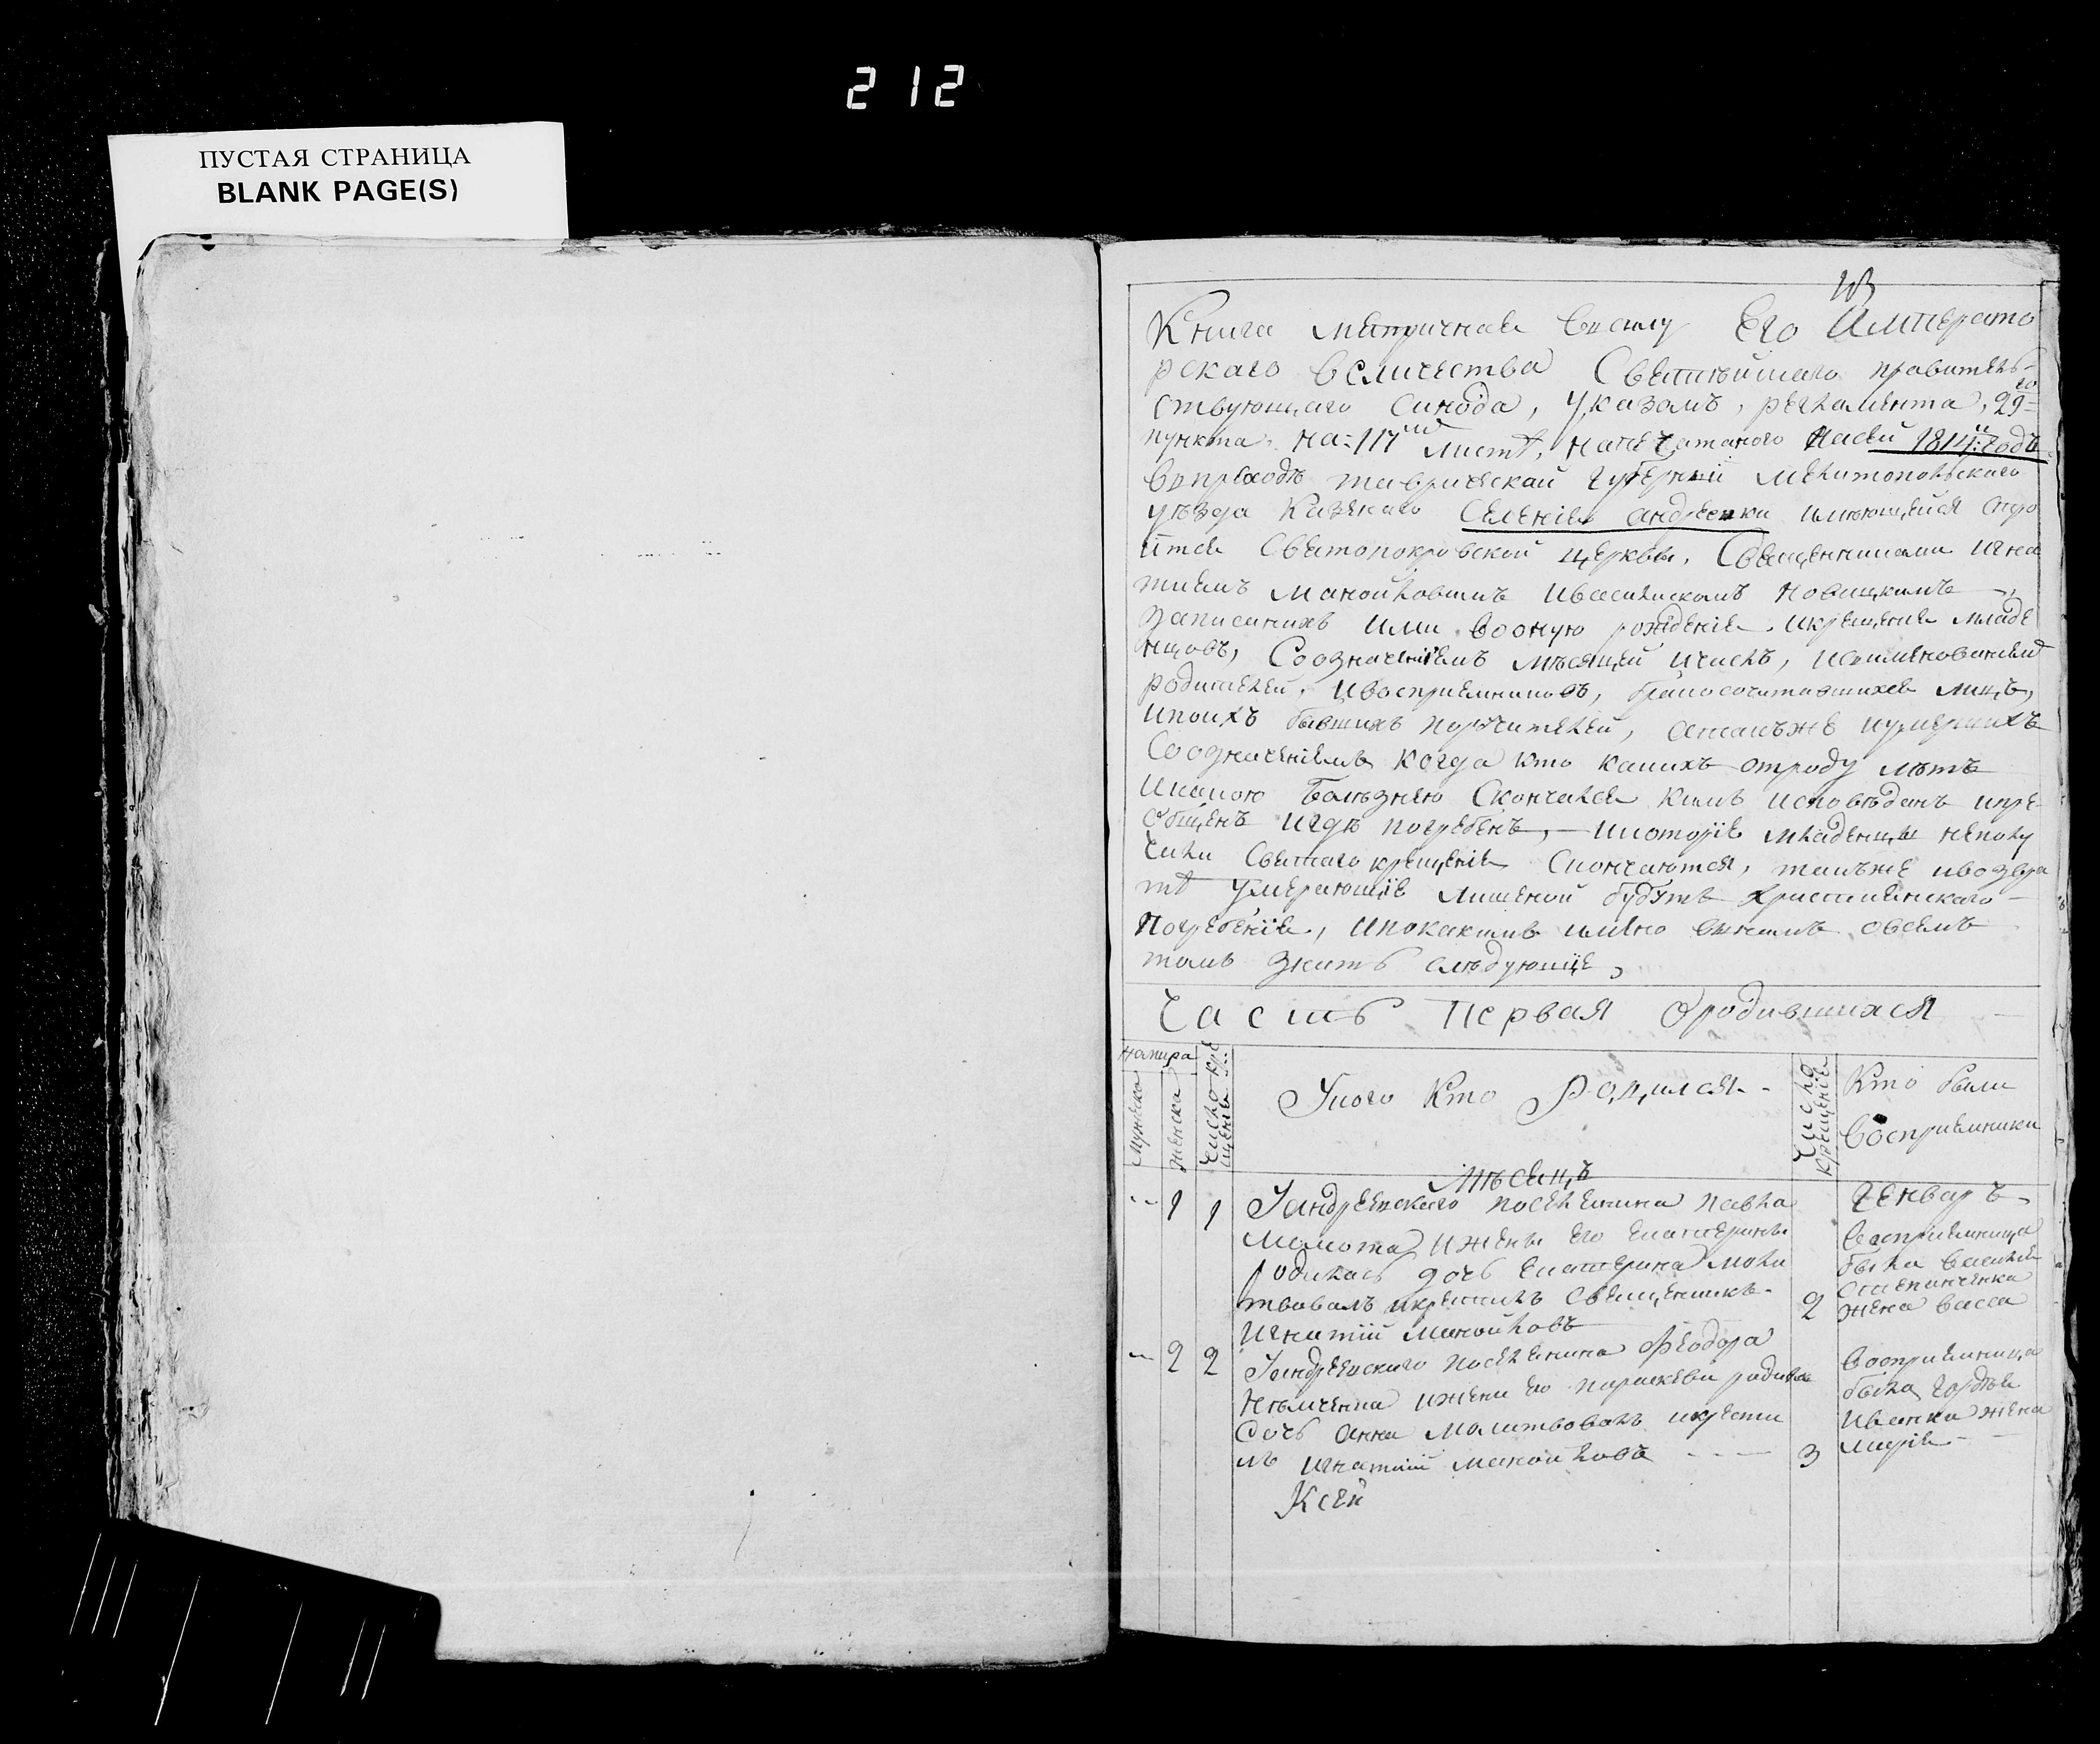 212
ПУСТАЯ СТРАНИЦА
BLANK PAGE(S)
Книга метричная всилу Его Императо
рскаго величества Святейшаго правитель-
ствующаго синода, указомъ, регламента, 29=го
пункта. на=117мъ листѣ, напечатаного насей 1814:й годъ
вприходѣ таврической губернии Мелитопольскаго
уѣзда казенаго селенія андреевки имеющейся стро
ится Святопокровской церквы, Священниками игна
тиемъ манойловымъ ивасилискомъ новицкимъ
записанихъ ими вооную рожденіе. икрещение младе
нцовъ, Соозначеніемъ мѣсяцей ичислъ, исимянованием
родителей, ивосприемниковъ, бракосочитавшихся лицъ,
ипоихъ бывшихъ поручителей, атакъже иумершихъ
Соозначениемъ когда кто какихъ отроду летъ
икакою болѣзнию Скончался кимъ исповѣданъ ипре
общенъ игдѣ погребенъ, — икоторіе младенцы неполу
чили Святаго крещенія Скончаются, такъже ивозвра
те умирающіе лишеной будутъ християнскаго
погребеніе, ипокакимъ имяно овсемъ
томъ значитъ следующіе,
Часть первая Ородившихся
Мужеска
женска
Число кре
щения
Укого Кто Родился
Число
крещенія
Кто были
Восприемники
Мѣсяцъ
Генваръ
1 1 Уандреевскаго поселянина павла
ижены его екатерины
родилась дочь екатерина моли
твовалъ икрестилъ священникъ
игнатій манойловъ
2
восприемница
была василия
степанченка
жена васса
2 2 Уандреевскаго поселянина Феодора
ижени его параскеви родила
дочь анна молитвовалъ икрести
лъ игнатий манойловъ
3
восприемница
была гордея
иванка жена
марія
Ксей